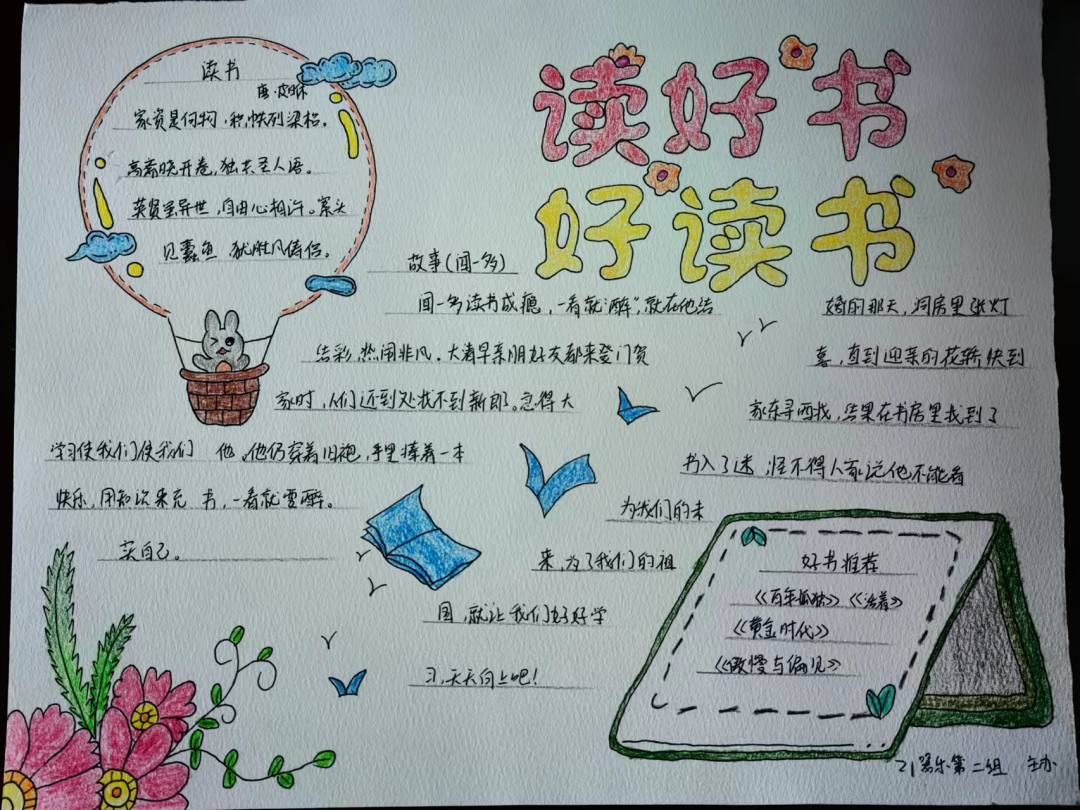 读好书
好读书
读书
唐·皮日休
家资是何物，积帙列梁梠。
高斋晓开卷，独共圣人语。
英贤虽异世，自由心相许。案头
见蠹鱼 犹胜凡俦侣。
故事（闻一多）
闻一多读书成瘾，一看就"醉"，就在他结 婚的那天，洞房里张灯
结彩，热闹非凡。大清早亲朋好友都来登门贺 喜，直到迎亲的花轿快到
家时，人们还到处找不到新郎。急得大 家东寻西找，结果在书房里找到了
学习使我们使我们 他。他仍穿着旧袍，手里捧着一本 书入了迷 怪不得人家说他不能看
快乐，用知识来充 书，一看就要醉。 为我们的未
实自己。 来，为了我们的祖
国，就让我们好好学
习，天天向上吧！
好书推荐
《百年孤独》《活着》
《黄金时代》
《傲慢与偏见》
21 乐第二组 主办